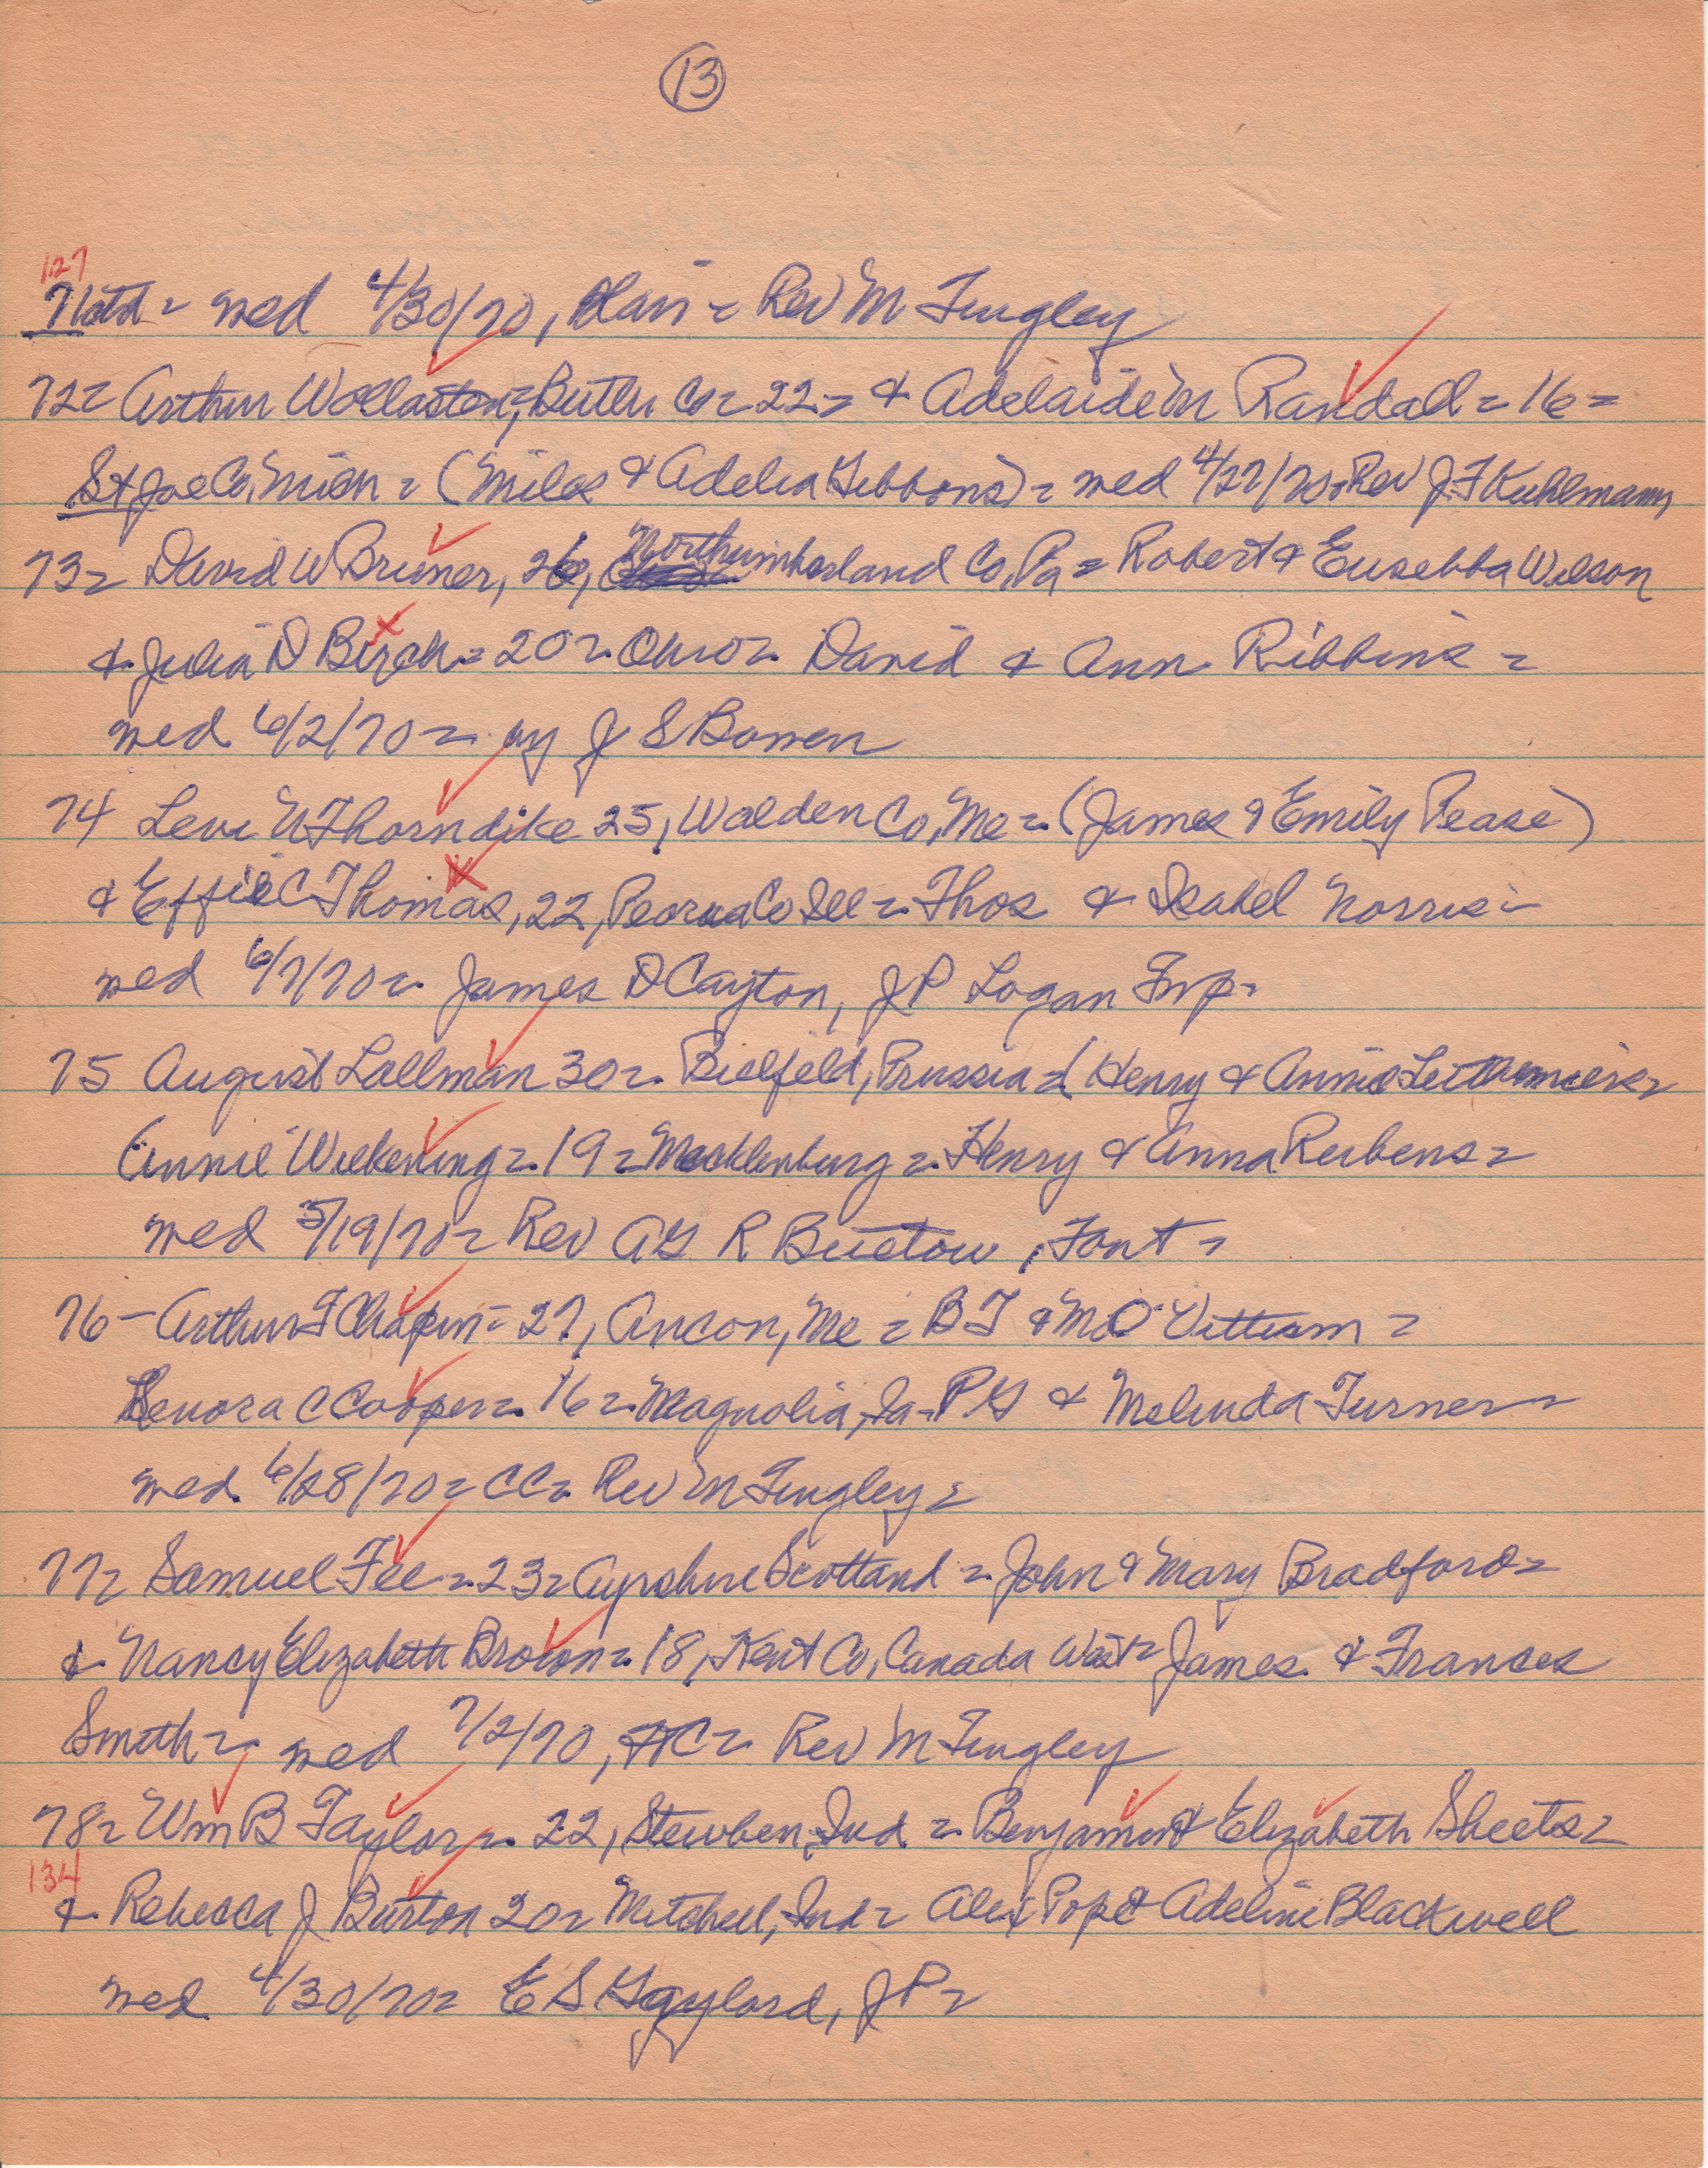 13
127
71ctd = wed 4/30/70, Blair = Rev M Tingley
72= Arthur Wollaston, Butler Co = 22 = & Adelaide M Randall = 16 =
St Joe Co, Mich = (Miles & Adelia Gibbons) = wed 4/27/70, Rev J F Kuhlmann,
73= David W Bruner, 26, Northumberland Co, Pa = Robert & Eusebba Wilson
& Julia D Birch = 20 = Ohio = David & Ann Ribbins =
wed 6/2/70 = by J S Bowen
74 Levi N Thorndike 25, Walden Co, Me = (James & Emily Pease)
& Effie C Thomas, 22, Peoria Co Ill = Thos & Isabel Norris =
wed 6/7/70 = James D Cayton, J P Logan Twp =
75 August Lallman 30 = Bielfeld, Prussia = (Henry & Annie
Annie Wilkening = 19 = Mecklenburg = Henry & Anna Reubens =
wed 5/19/70 = Rev A G R Buetow, Font =
76 - Arthur F Chapin = 27, Ancon, Me = B F & M O Vittum =
Lenora C Cooper = 16 = Magnolia, Ia = P G & Melinda Turner =
wed 6/28/70 = CC = Rev M Tingley =
77= Samuel Fee = 23 = Ayrshire Scotland = John & Mary Bradford =
& Nancy Elizabeth Brown = 18, Kent Co, Canada West = James & Frances
Smith = wed 7/2/70, = Rev M Tingley
78= Wm B Taylor = 22, Steuben, Ind = Benjamin & Elizabeth Sheets =
134
& Rebecca J Burton 20 = Mitchell, Ind = Alex Pope & Adeline Blackwell
wed 4/30/70 = E S Gaylord, J P =